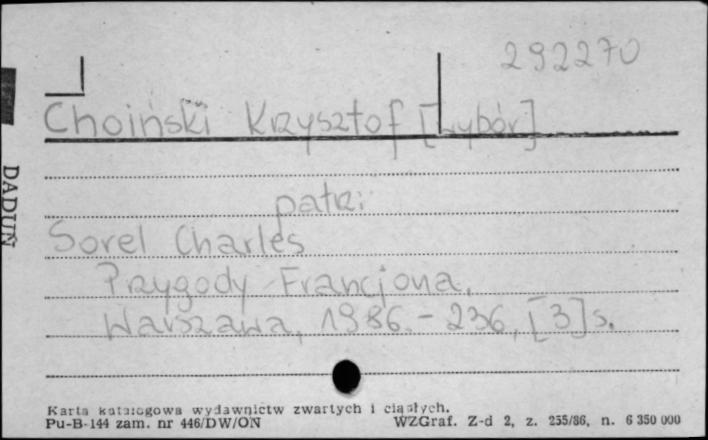 292270
Choiński Krzysztof [Wybór]
patrz:
Sorel Charles
Przygody Francjona.
Warszawa, 1986. - 236, [3] s.
DADUŃ
Karta katalogowa wydawnictw zwartych i ciągłych.
Pu-B-144 zam. nr 446/DW/ON WZGraf. Z-d 2, z. 255/86, n. 6 350 000